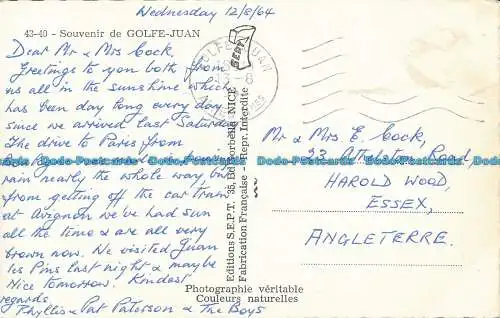 Wednesday 12/8/64
43-40 - Souvenir de GOLFE-JUAN
Dear Mr & Mrs Cock,
Greetings to you both from
us all in the sunshine which
has been day long every day
since we arrived last Saturday
The drive to Paris from
rain nearly the whole way but
from getting off the car train
at Avignon we've had sun
all the time & are all very
brown now. We visited Juan
les Pins last night & maybe
Nice tomorrow. Kindest
regards
Phyllis & Pat Paterson & The Boys
GOLFE JUAN
SEPT
Editions S.E.P.T., 35, Bd NICE
Fabrication Française - Repr. Interdite
Photographie véritable
Couleurs naturelles
Mr & Mrs E. Cock,
Road,
HAROLD WOOD,
ESSEX,
ANGLETERRE.